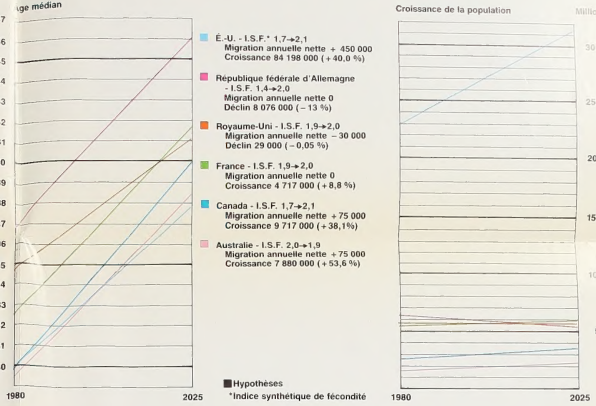 Age médian
7
6
5
4
3
2
1
0
39
38
37
36
5
4
3
2
1
0
1980
2025
É.-U. - I.S.F.* 1,7→2,1
Migration annuelle nette + 450 000
Croissance 84 198 000 (+40,0 %)
République fédérale d'Allemagne
- I.S.F. 1,4→2,0
Migration annuelle nette 0
Déclin 8 076 000 (– 13 %)
Royaume-Uni - I.S.F. 1,9→2,0
Migration annuelle nette – 30 000
Déclin 29 000 (– 0,05 %)
France - I.S.F. 1,9→2,0
Migration annuelle nette 0
Croissance 4 717 000 (+8,8 %)
Canada - I.S.F. 1,7→2,1
Migration annuelle nette +75 000
Croissance 9 717 000 (+38,1%)
Australie - I.S.F. 2,0→1,9
Migration annuelle nette +75 000
Croissance 7 880 000 (+53,6 %)
Hypothèses
*Indice synthétique de fécondité
Croissance de la population
Millio
30
25
20
15
10
1980
2025